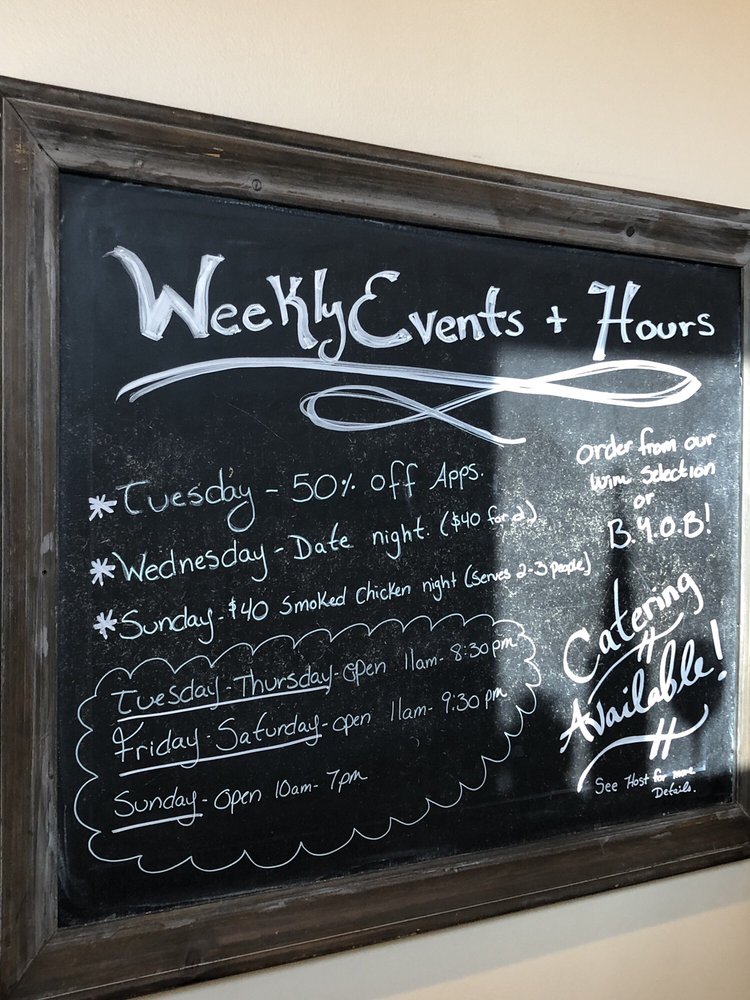 Weekly Events + Hours
* Tuesday - 50% off Apps.
* Wednesday - Date night. ($40 for 2)
* Sunday - $40 Smoked Chicken night (Serves 2-3 people)
Tuesday - Thursday - open 11am - 8:30 pm
Friday - Saturday - open 11am - 9:30 pm
Sunday - Open 10am - 7pm
order from our
Wine Selection
or
B.Y.O.B!
Catering
Available!
See Host for more
Details.